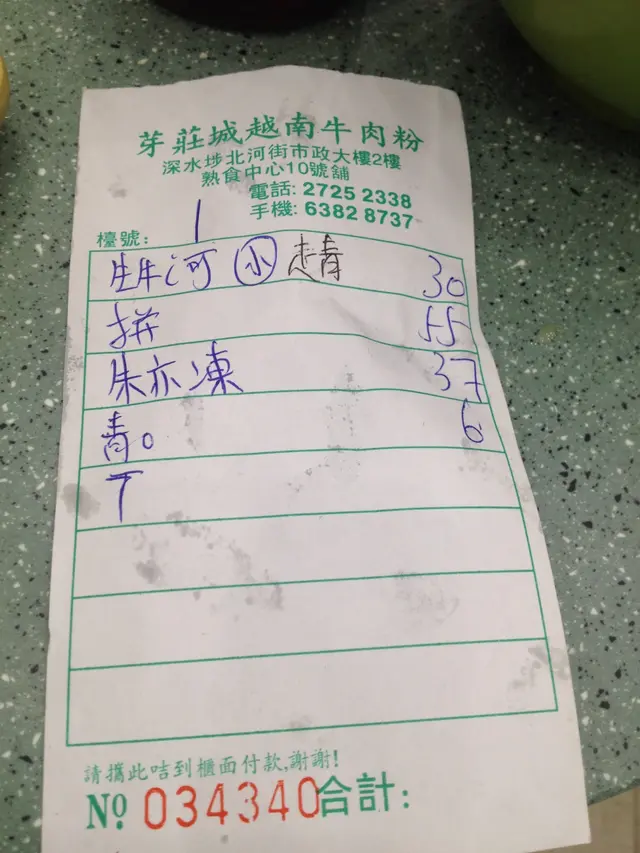 芽莊城越南牛肉粉
深水埗北河街市政大樓2樓
熟食中心10號舖
電話: 2725 2338
手機: 6382 8737
檯號: 1
生牛河 小 走青 30
拼 55
朱亦凍 37
青。 6
T
請攜此咭到櫃面付款,謝謝!
Nº 034340 合計: